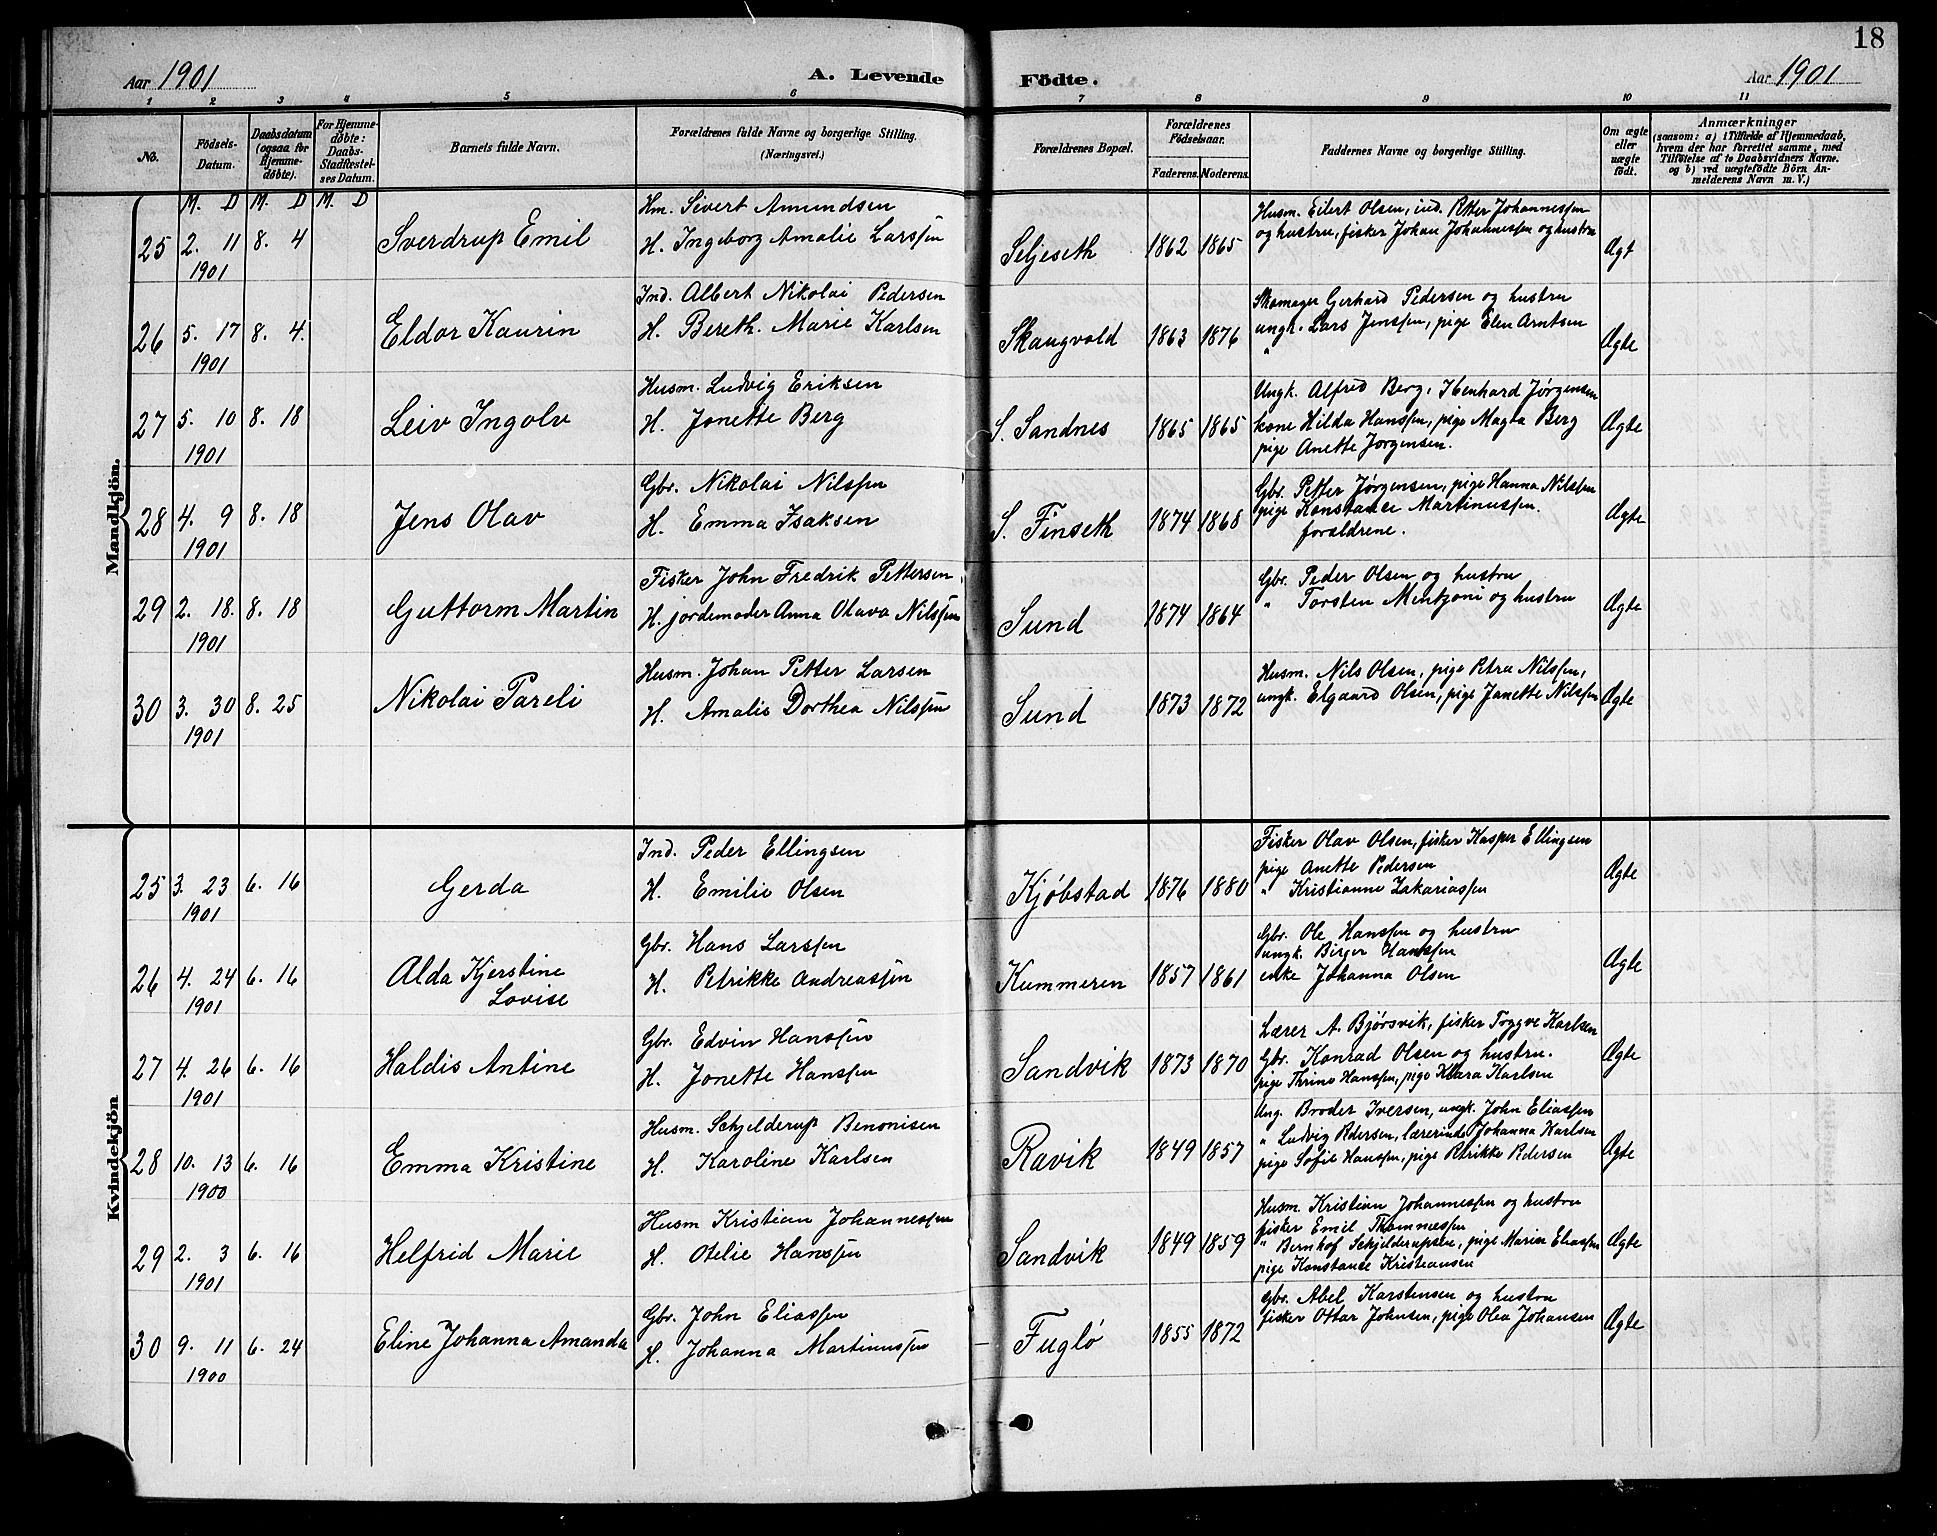 18
Aar 1901
A. Levende
Födte.
Aar 1901
1 2 3 4 5 6 7 8 9 10 11
No.
Födsels-Datum.
Daabsdatum (ogsaa for Hjemme-døbte).
For Hjemme-døbte: Daabs-Stadfestel-ses Datum.
Barnets fulde Navn.
Forældrenes fulde Navne og borgerlige Stilling.
(Næringsvei.)
Forældrenes Bopæl.
Forældrenes Födselsaar.
Faderens. Moderens.
Faddernes Navne og borgerlige Stilling.
Om ægte eller uægte født.
Anmærkninger
(saasom: a) i Tilfælde af Hjemmedaab, hvem der har forrettet samme, med Tilføielse af to Daabsvidners Navne. og b) ved uægtefödte Börn An-melderens Navn m. V.)
M. D M. D M. D
Mandkjön.
25 2. 11 1901 8. 4 Sverdrup Emil
Hm. Sivert Amundsen
H. Ingeborg Amalie Larssen
Seljeseth 1862 1865
Husm. Eilert Olsen, ind. Petter Johannessen
og hustru, fisker Johan Johannessen og hustru
Ægt
26 5. 17 1901 8. 4. Eldor Kaurin
Ind. Albert Nikolai Pedersen
H. Bereth. Marie Karlsen
Skaugvold 1863 1876
Skomager Gerhard Pedersen og hustru
ungk. Lars Jenssen, pige Elen Arntsen
"
Ægte
27 5. 10 1901 8. 18 Leiv Ingolv
Husm. Ludvig Eriksen
H. Jonette Berg
S. Sandnes 1865 1865
Ungk. Alfred Berg, Jørgensen
kone Hilda Hanssen, pige Magta Berg
pige Anette Jørgensen.
Ægte
28 4. 9 1901 8. 18 Jens Olav
Gbr. Nikolai Nilssen
H. Emma Isaksen
S. Finseth 1874 1868
Gbr. Petter Jørgensen, pige Hanna Nilssen
pige Konstance Martinussen.
forældrene.
Ægte
29 2. 18. 1901 8. 18 Guttorm Martin
Fisker John Fredrik Pettersen
H. jordemoder Anna Olava Nilssen
Sund 1874 1864
Gbr. Peder Olsen og hustru
" Torsten Mentzoni og hustru
Ægte
30 3. 30 1901 8. 25 Nikolai Pareli
Husm. Johan Petter Larsen
H. Amalie Dorthea Nilssen
Sund 1873 1872
Husm. Nils Olsen, pige Petra Nilssen,
ungk. Elgaard Olsen, pige Janette Nilssen
Ægte
Kvindekjön
25 3. 23 1901 6. 16 Gerda
Ind. Peder Ellingsen
H. Emilie Olsen
Kjøbstad 1876 1880
Fisker Olav Olsen, fisker Kasper Ellingsen
pige Anette Pedersen
" Kristianne Zakariassen
Ægte
26 4. 24 1901 6. 16 Alda Kjerstine
Lovise
Gbr. Hans Larssen
H. Petrikke Andreassen
Kummeren 1857 1861
Gbr. Ole Hanssen og hustru
ungk. Birger Hanssen
enke Johanna Olsen
Ægte
27 4. 26 1901 6. 16 Haldis Antine
Gbr. Edvin Hanssen
H. Jonette Hanssen
Sandvik 1873 1870
Lærer A. Bjørsvik, fisker Tryggve Karlsen
Gbr. Konrad Olsen og hustru.
pige Thrine Hanssen, pige Klara Karlsen
Ægte
28 10. 13 1900 6. 16 Emma Kristine
Husm. Schjelderup Benonisen
H. Karoline Karlsen
Ravik 1849 1857
Ung. Broder Iversen, ungk. John Eliassen
" Ludvig Pedersen, lærerinde Johanna Karlsen
pige Sofie Hanssen, pige Petrikke Pedersen
Ægte
29 2. 3 1901 6. 16 Helfrid Marie
Husm Kristian Johannessen
H. Otelie Hanssen
Sandvik 1849 1859
Husm. Kristian Johannessen og hustru
fisker Emil Thommessen
" Bernhof Schjelderupsen, pige Marie Eliassen
pige Konstance Kristiansen
Ægte
30 9. 11 1900 6. 24 Eline Johanna Amanda
Gbr. John Eliassen
H. Johanna Martinussen
Fuglø 1855 1872
Gbr. Abel Karstensen og hustru
fisker Ottar Johnsen, pige Olea Johansen
Ægte